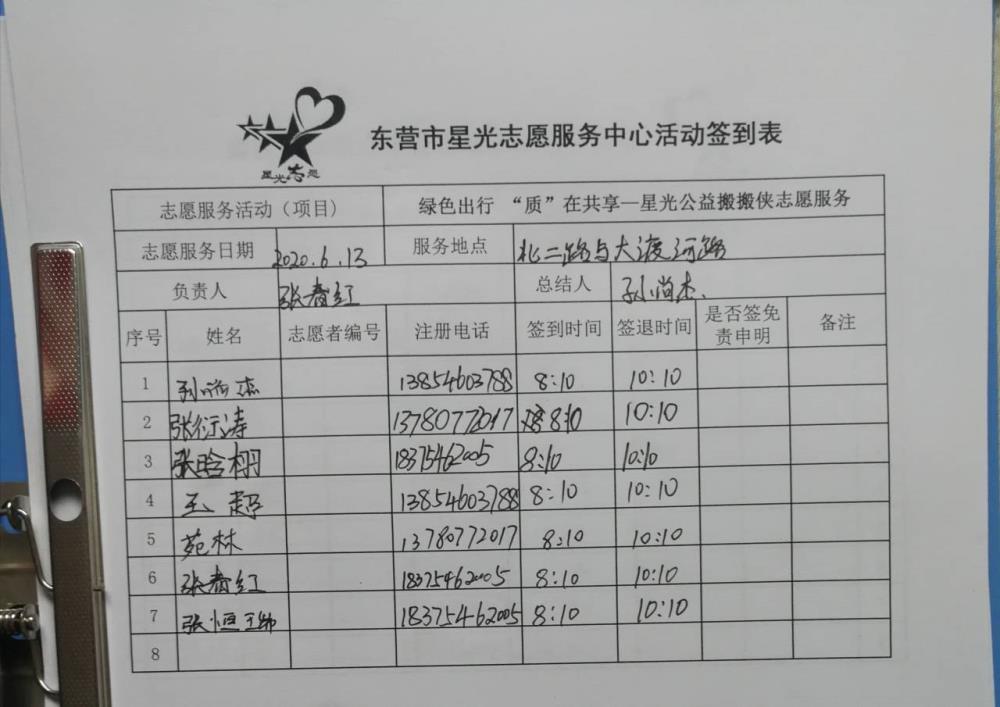 星光志愿
东营市星光志愿服务中心活动签到表
志愿服务活动（项目） 绿色出行 “质”在共享—星光公益搬搬侠志愿服务
志愿服务日期 2020.6.13 服务地点 北二路与大渡河路
负责人 张春红 总结人 孙尚杰.
序号 姓名 志愿者编号 注册电话 签到时间 签退时间 是否签免责申明 备注
1 孙尚杰 13854603788 8:10 10:10
2 张衍涛 13780772017 8:10 10:10
3 张晗栩 18375462005 8:10 10:10
4 王超 13854603788 8:10 10:10
5 苑林 13780772017 8:10 10:10
6 张春红 18375462005 8:10 10:10
7 张恒 18375462005 8:10 10:10
8